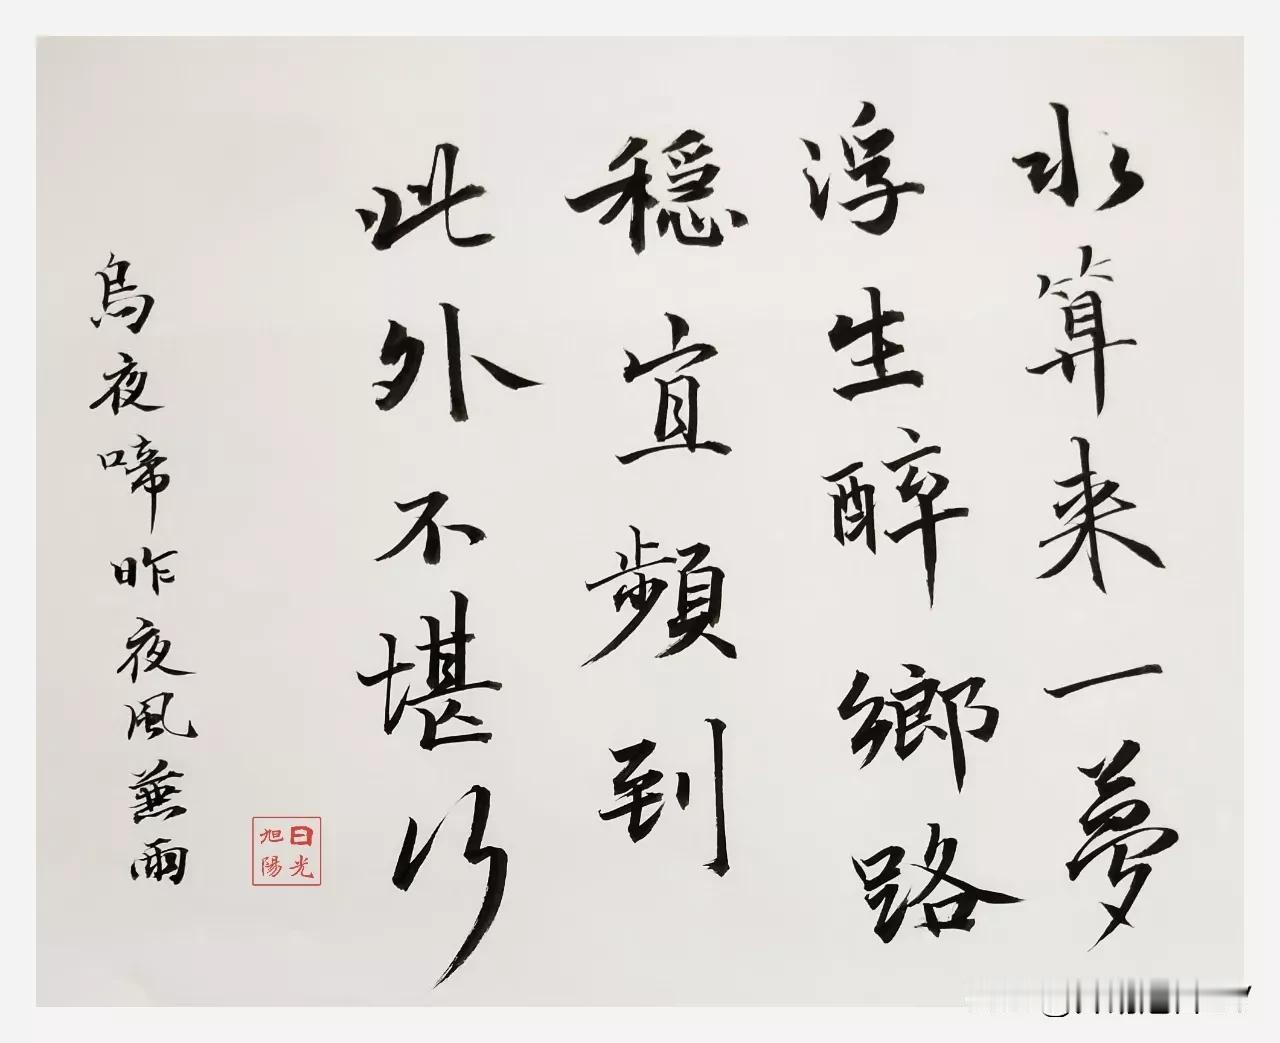 水算来一夢
浮生醉鄉路
穩宜頻到
此外不堪行
烏夜啼昨夜風蒹雨
日光
旭陽